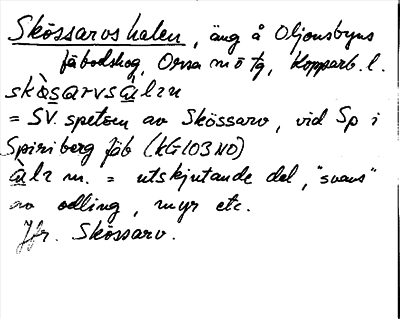 Skössarvshalen, äng å Oljonsbyns
fäbodskog, Orsa sn o tg, Kopparb. l.
skòsarvsàlen
= SV. spetsen av Skössarv, vid Sp i
Spiriberg fäb (KG=103 NO)
àlr m. = utskjutande del, "svans"
av odling, myr etc.
Jfr. Skössarv.